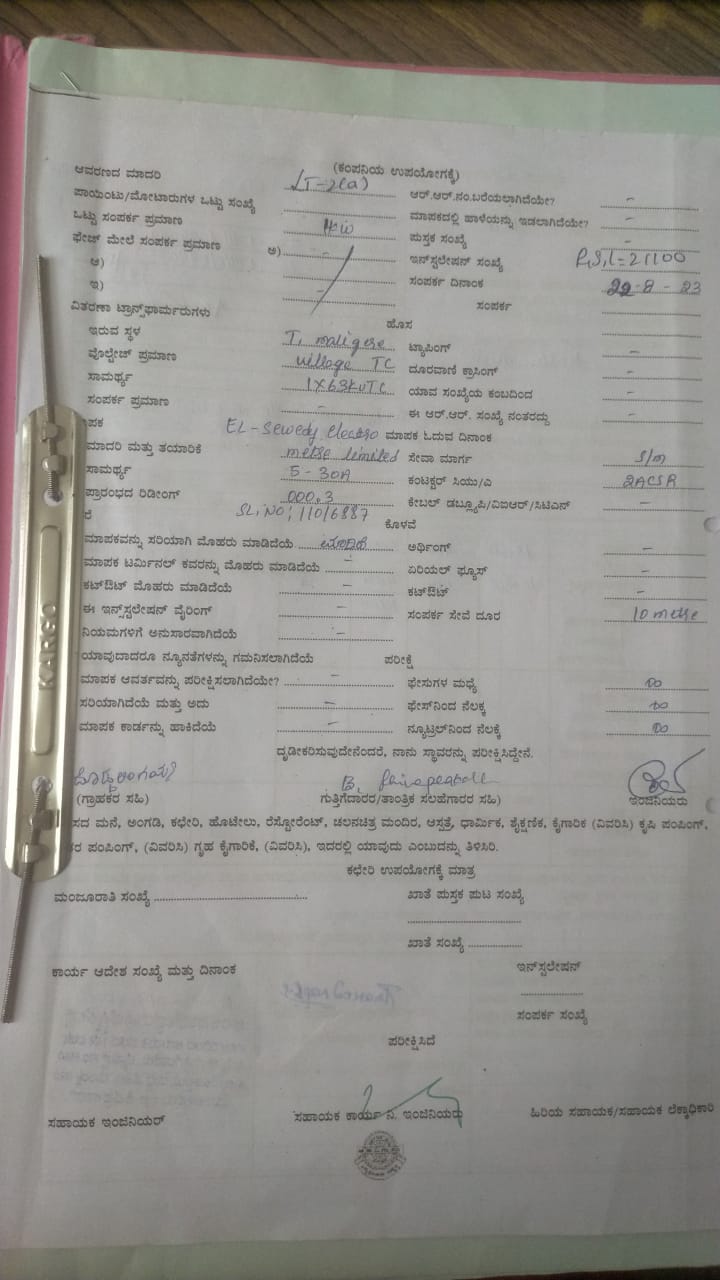 (ಕಂಪನಿಯ ಉಪಯೋಗಕ್ಕೆ)
ಆವರಣದ ಮಾದರಿ LT-2(a) ಆರ್.ಆರ್.ನಂ.ಬರೆಯಲಾಗಿದೆಯೇ? -
ಪಾಯಿಂಟು/ಮೋಟಾರುಗಳ ಒಟ್ಟು ಸಂಖ್ಯೆ ಮಾಪಕದಲ್ಲಿ ಹಾಳೆಯನ್ನು ಇಡಲಾಗಿದೆಯೇ? -
ಒಟ್ಟು ಸಂಪರ್ಕ ಪ್ರಮಾಣ ಪುಸ್ತಕ ಸಂಖ್ಯೆ -
ಫೇಜ್ ಮೇಲೆ ಸಂಪರ್ಕ ಪ್ರಮಾಣ ಅ) - ಇನ್‌ಸ್ಟಲೇಷನ್ ಸಂಖ್ಯೆ 21100
ಆ) ಸಂಪರ್ಕ ದಿನಾಂಕ 22-8-23
ಇ) - ಸಂಪರ್ಕ
ವಿತರಣಾ ಟ್ರಾನ್ಸ್‌ಫಾರ್ಮರುಗಳು ಹೊಸ
ಇರುವ ಸ್ಥಳ T. maligere ಟ್ಯಾಪಿಂಗ್ -
ವೊಲ್ಟೇಜ್ ಪ್ರಮಾಣ village TC ದೂರವಾಣಿ ಕ್ರಾಸಿಂಗ್ -
ಸಾಮರ್ಥ್ಯ 1X63KVTC ಯಾವ ಸಂಖ್ಯೆಯ ಕಂಬದಿಂದ -
ಸಂಪರ್ಕ ಪ್ರಮಾಣ - ಈ ಆರ್.ಆರ್. ಸಂಖ್ಯೆ ನಂತರದ್ದು -
ಪಕ EL-Sewedy electro ಮಾಪಕ ಓದುವ ದಿನಾಂಕ
ಮಾದರಿ ಮತ್ತು ತಯಾರಿಕೆ limited ಸೇವಾ ಮಾರ್ಗ S/m
ಸಾಮರ್ಥ್ಯ 5-30A ಕಂಟಕ್ಟರ್ ಸಿಯು/ಎ 2ACSR
ಪ್ರಾರಂಭದ ರಿಡೀಂಗ್ 000.3 ಕೇಬಲ್ ಡಬ್ಲ್ಯೂಪಿ/ವಿಐಆರ್/ಸಿಟಿಎನ್ -
ರೆ SL.NO: 11016887 ಕೊಳವೆ
ಮಾಪಕವನ್ನು ಸರಿಯಾಗಿ ಮೊಹರು ಮಾಡಿದೆಯೆ ಮಾಡಿದೆ ಅರ್ಥಿಂಗ್ -
ಮಾಪಕ ಟರ್ಮಿನಲ್ ಕವರನ್ನು ಮೊಹರು ಮಾಡಿದೆಯೆ - ಏರಿಯಲ್ ಫ್ಯೂಸ್ -
ಕಟ್‌ಔಟ್ ಮೊಹರು ಮಾಡಿದೆಯೆ - ಕಟ್‌ಔಟ್ -
ಈ ಇನ್‌ಸ್ಟಲೇಷನ್ ವೈರಿಂಗ್ - ಸಂಪರ್ಕ ಸೇವೆ ದೂರ 10
ನಿಯಮಗಳಿಗೆ ಅನುಸಾರವಾಗಿದೆಯೆ -
ಯಾವುದಾದರೂ ನ್ಯೂನತೆಗಳನ್ನು ಗಮನಿಸಲಾಗಿದೆಯೆ ಪರೀಕ್ಷೆ
ಮಾಪಕ ಆವರ್ತವನ್ನು ಪರೀಕ್ಷಿಸಲಾಗಿದೆಯೇ? - ಫೇಸುಗಳ ಮಧ್ಯೆ ∞
ಸರಿಯಾಗಿದೆಯೆ ಮತ್ತು ಅದು - ಫೇಸ್‌ನಿಂದ ನೆಲಕ್ಕೆ ∞
ಮಾಪಕ ಕಾರ್ಡನ್ನು ಹಾಕಿದೆಯೆ - ನ್ಯೂಟ್ರಲ್‌ನಿಂದ ನೆಲಕ್ಕೆ ∞
ದೃಡೀಕರಿಸುವುದೇನೆಂದರೆ, ನಾನು ಸ್ಥಾವರನ್ನು ಪರೀಕ್ಷಿಸಿದ್ದೇನೆ.
(ಗ್ರಾಹಕರ ಸಹಿ) ಗುತ್ತಿಗೆದಾರರ/ತಾಂತ್ರಿಕ ಸಲಹೆಗಾರರ ಸಹಿ) ಇಂಜಿನಿಯರು
ಸದ ಮನೆ, ಅಂಗಡಿ, ಕಛೇರಿ, ಹೋಟೇಲು, ರೆಸ್ಟೋರೆಂಟ್, ಚಲನಚಿತ್ರ ಮಂದಿರ, ಆಸ್ಪತ್ರೆ, ಧಾರ್ಮಿಕ, ಶೈಕ್ಷಣಿಕ, ಕೈಗಾರಿಕ (ವಿವರಿಸಿ) ಕೃಷಿ ಪಂಪಿಂಗ್,
ರ ಪಂಪಿಂಗ್, (ವಿವರಿಸಿ) ಗೃಹ ಕೈಗಾರಿಕೆ, (ವಿವರಿಸಿ), ಇದರಲ್ಲಿ ಯಾವುದು ಎಂಬುದನ್ನು ತಿಳಿಸಿರಿ.
ಕಛೇರಿ ಉಪಯೋಗಕ್ಕೆ ಮಾತ್ರ
ಮಂಜೂರಾತಿ ಸಂಖ್ಯೆ ಖಾತೆ ಪುಸ್ತಕ ಪುಟ ಸಂಖ್ಯೆ
ಖಾತೆ ಸಂಖ್ಯೆ
ಕಾರ್ಯ ಆದೇಶ ಸಂಖ್ಯೆ ಮತ್ತು ದಿನಾಂಕ ಇನ್‌ಸ್ಟಲೇಷನ್
ಸಂಪರ್ಕ ಸಂಖ್ಯೆ
ಪರೀಕ್ಷಿಸಿದೆ
ಸಹಾಯಕ ಇಂಜಿನಿಯರ್ ಸಹಾಯಕ ಕಾರ್ಯ ನಿ. ಇಂಜಿನಿಯರು ಹಿರಿಯ ಸಹಾಯಕ/ಸಹಾಯಕ ಲೆಕ್ಕಾಧಿಕಾರಿ
KARGO